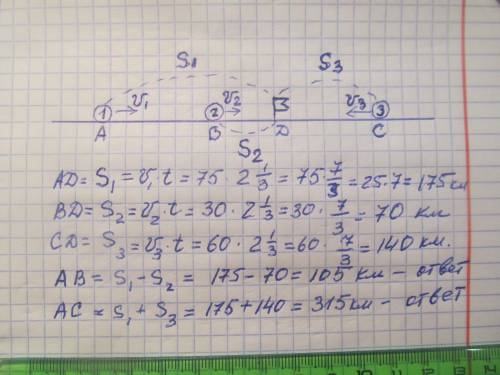 S₁ S₃
1 v₁ 2 v₂ v₃ 3
A B D C
S₂
AD = S₁ = v₁ t = 75 · 2 1/3 = 75 · 7/3 = 25 · 7 = 175 км
BD = S₂ = v₂ · t = 30 · 2 1/3 = 30 · 7/3 = 70 км
CD = S₃ = v₃ · t = 60 · 2 1/3 = 60 · 7/3 = 140 км.
AB = S₁ - S₂ = 175 - 70 = 105 км - ответ
AC = S₁ + S₃ = 175 + 140 = 315 км - ответ